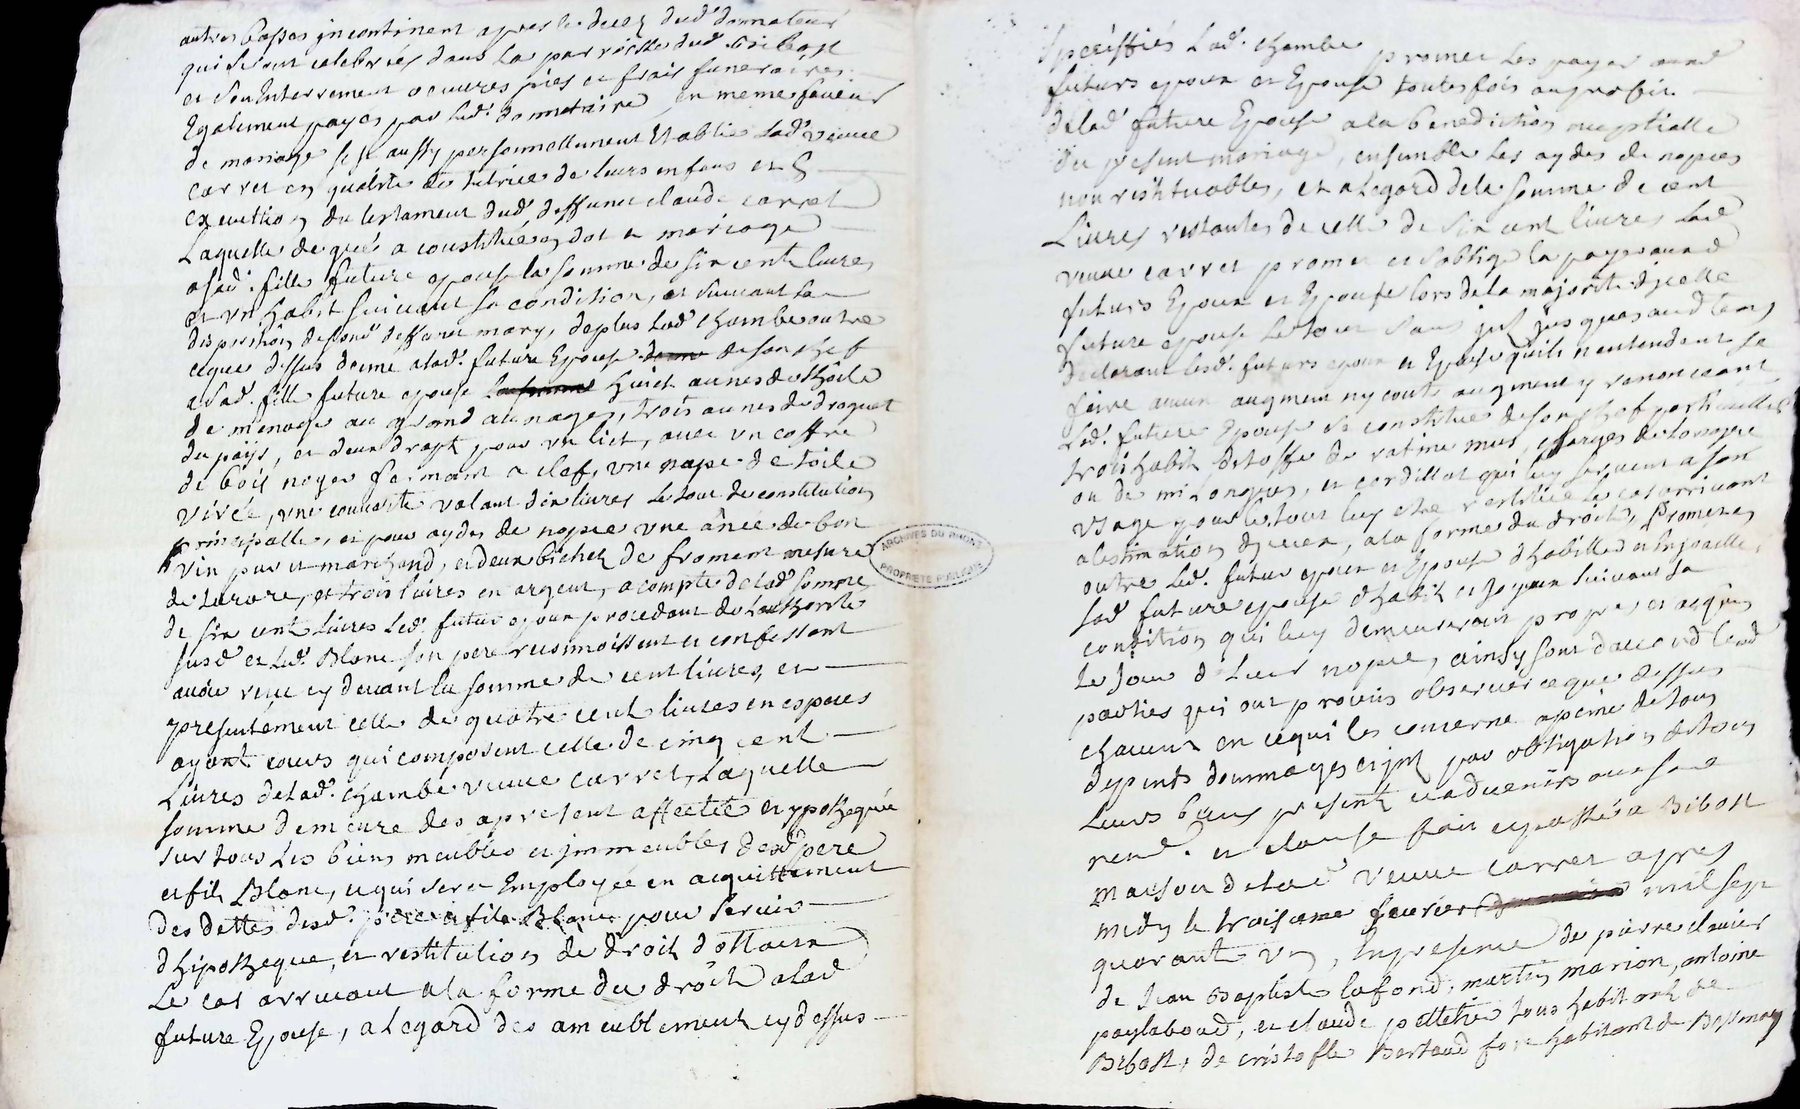 autres basses incontinent apres le deces dud. donnateur
qui seront celebrées dans la parroisse dud. Bibost
et son Enterrement oeuvres pies et frais funeraires
Egalement payés par led. donnataire en meme faveur
de mariage s'est aussy personnellement Etablie lad. veuve
carret en qualité de tutrice de leurs enfans et
execution du testament dud. deffunct claude carret
Laquelle de gré a constitué en dot et mariage
a sad. fille future epouse la somme de six cent livres
et un habit suivant sa condition, et suivant la
disposition de sond. deffunt mary, deplus lad. chambe outre
ceque dessus donne a lad. future Epouse de son chef
a sad. fille future epouse huict aunes de thoile
de menage au grand aunage, trois aunes de droguet
du païs, et deux drapt pour un lict, avec un coffre
de bois noyer fermant a clef, une nape de toile
, une couverte valant dix livres le tout de constitution
principalle, et pour aydes de nopce une anée de bon
vin pur et marchand, et deux bichets de froment mesure
de tarare, et trois livres en argent, a compte de lad. somme
de six cent livres led. futur epoux procedant de l'authorité
susd. et led. Blanc son pere reconnoissent et confessent
avoir receu cy devant la somme de cent livres, et
presentement celle de quatre cent livres en especes
ayant cours qui composent celle de cinq cent
Livres de lad. chambe veuve carret, Laquelle
somme demeure des apresent affectée et ypothequée
sur tous les biens meubles et immeubles desd. pere
et fils Blanc, ce qui sera Employée en acquittement
des dettes desd. pere et fils Blanc pour servir
d'hipotheque, et restitution de droit
Le cas arrivant a la forme du droit a lad
future Epouse, a l'egard des ameublement cy dessus
Speciffiés lad. chambe promet les payer aud
futurs epoux et Epouse toutesfois au proffit
de lad. future Epouse a la benediction nuptialle
du present mariage, ensemble les aydes de nopces
non restituables, et a l'egard de la somme de cent
Livres restantes de celle de six cent livres lad
veuve carret promet et s'oblige la payer auxd
futurs Epoux et Epouse lors de la majorité d'icelle
future epouse le tout sans jusques aud. tems
declarant lesd. futurs epoux et Epouse qu'ils n'entendent se
faire aucun augment ny contre augment y renonceant
Led. future Epouse se constitue de son chef particullier
trois habit d'etoffe de ratine mus, sarges de
ou de , et cordillat qui luy servent a son
usage pour le tout luy etre restitué le cas arrivant
a l'estimation d'iceux, a la forme du droit, Promet en
outre led. futur epoux et Epouse d'habille et enjoaille
sad. future epouse d'habit et joyaux suivant sa
condition qui luy demeureront propres et acquis
le jour de leur nopce, ainsy sont d'accord lesd
parties qui ont promis observer ceque dessus
chacun en cequi les concerne a peine de tous
depents dommages et int par obligation de tous
Leurs biens present et advenirs ava sme
rend. et clause fait et passé a Bibost
maison de lad. veuve carret apres
midy le troisieme fevrier mil sept
quarante un, En presence de pierre clavier
de Jean Baptiste lafond, martin marion, antoine
, et claude pelletier tous habitant de
Bibost, de cristofle Bertaud habitant de Bessenay
ARCHIVES DU RHONE
PROPRIÉTÉ PUBLIQUE